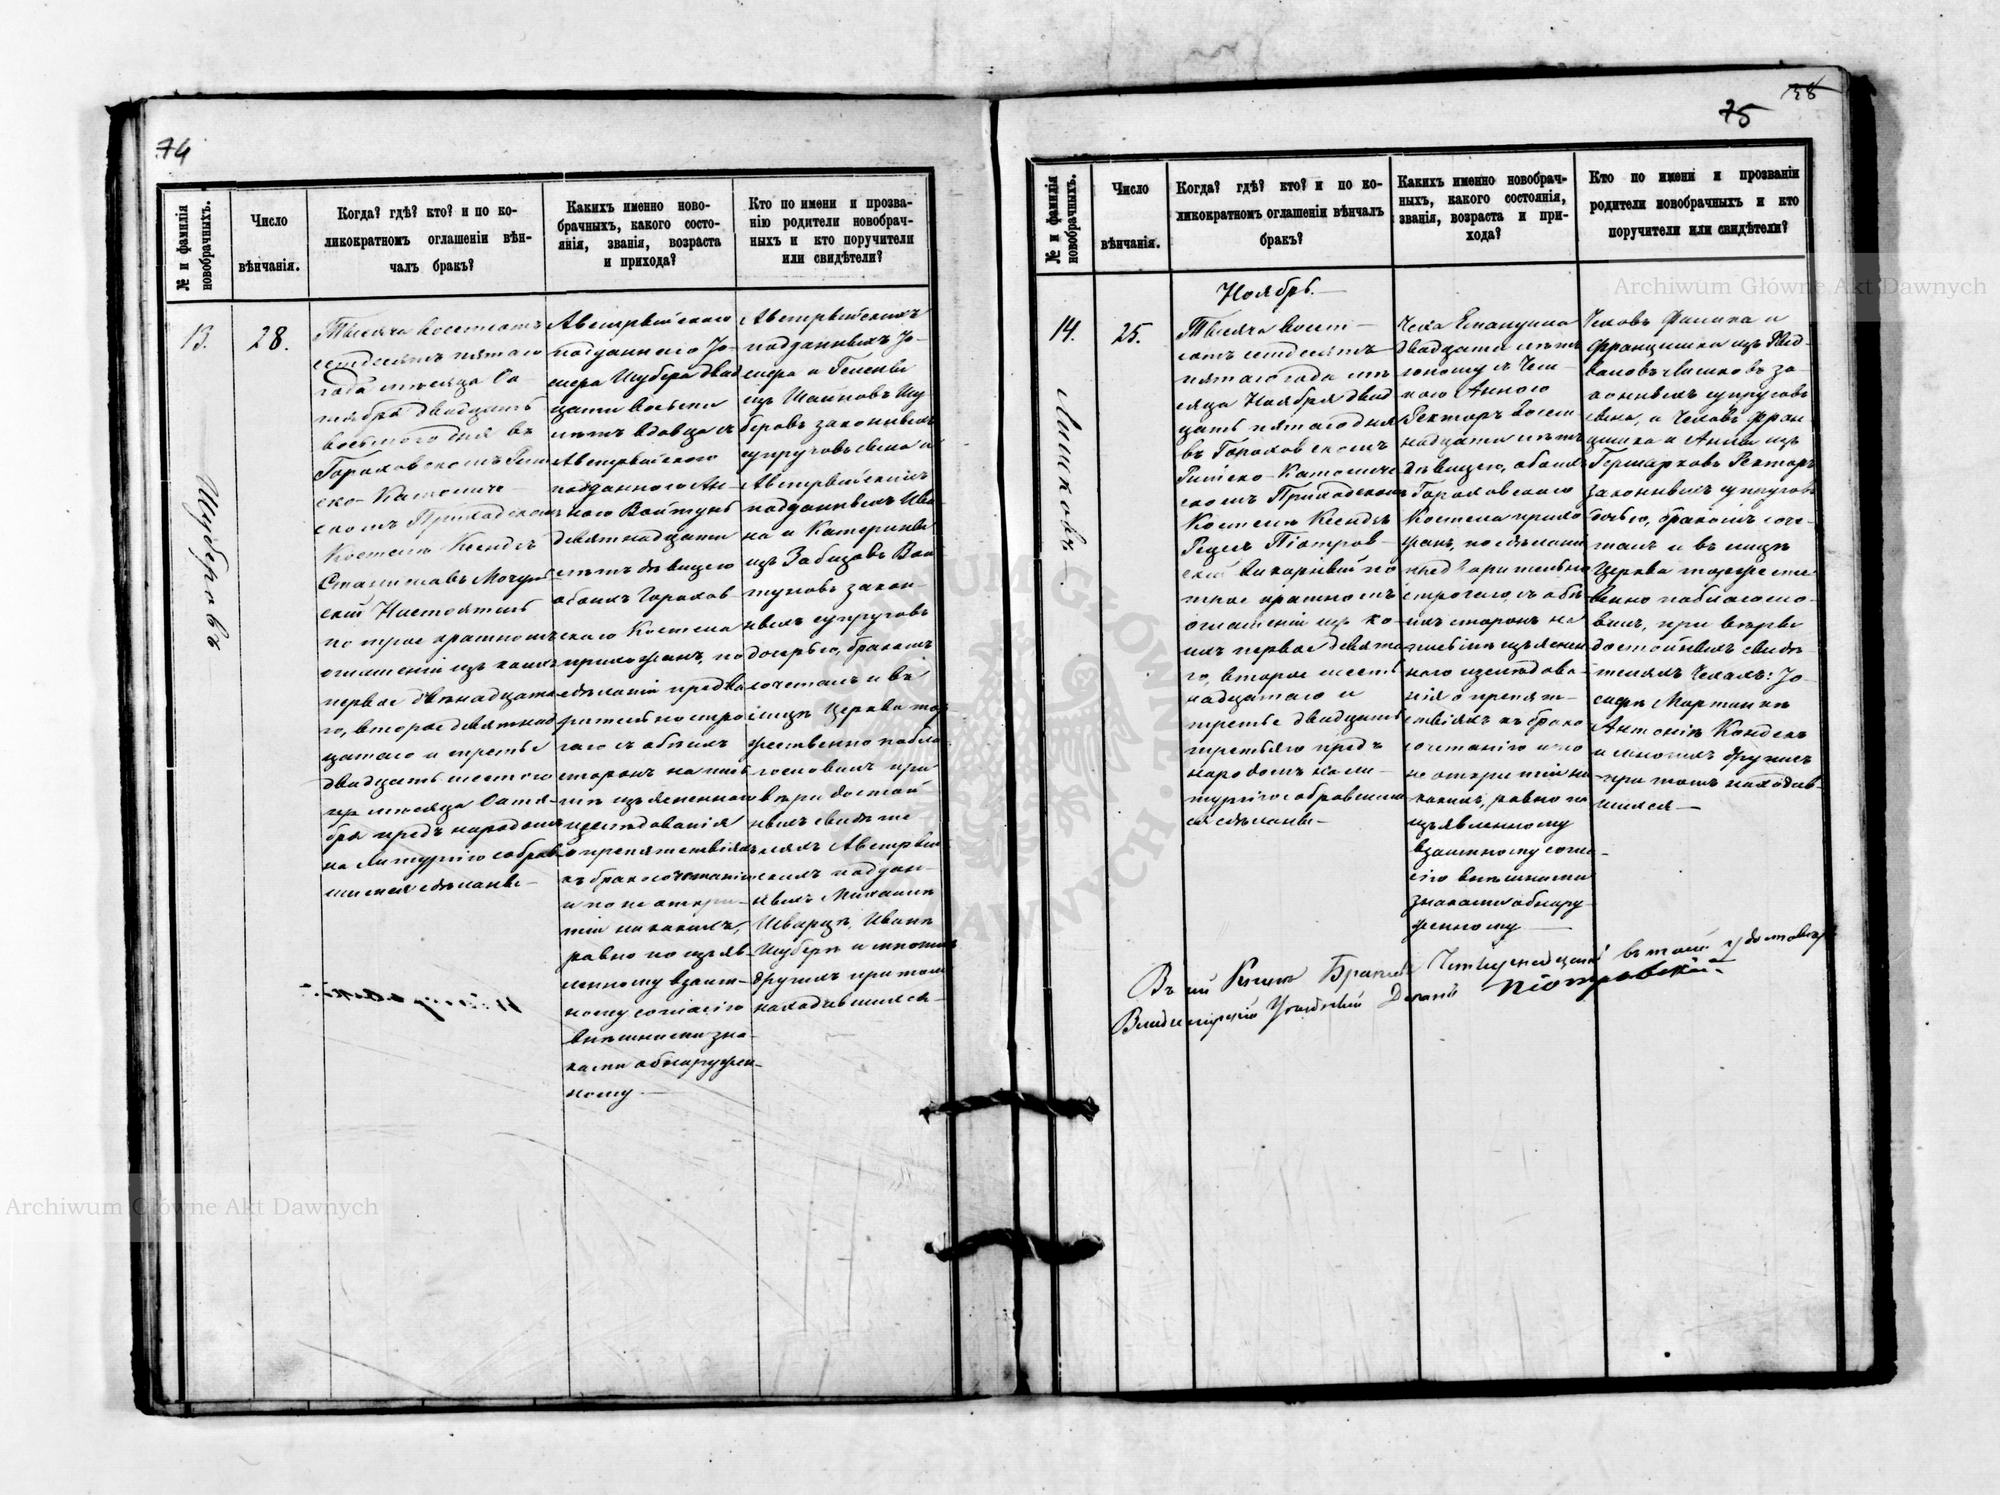 74
№ и фамилія новобрачныхъ.
Число
вѣнчанія.
Когда? гдѣ? кто? и по ко-
ликократномъ оглашеніи вѣн-
чалъ бракъ?
Каких ъ именно ново-
брачныхъ, какого состо-
янія, званія, возраста
и прихода?
Кто по имени и прозва-
нію родители новобрач-
ныхъ и кто поручители
или свидѣтели?
13.
Шуберовъ
28.
Тысяча восемьсотъ
семдесятъ пятаго
года мѣсяца Ок-
тября двадцать
восьмого дня въ
Гороховскомъ Рим
ско-Католиче-
скомъ Приходском
Костелѣ Ксендзъ
Станиславъ
скій Настоятель
по трое кратномъ
оглашеніи изъ коихъ
первое двѣнадцата
го, второе девятнад
цатаго и третье
двадцать шестого
мѣсяца Октя-
бря предъ народомъ
на Литургію собрав
шимся сдѣланы-
Австрыйскаго
подданнаго Іо-
сифа Шубера двад
цати восьми
лѣтъ вдовца съ
Австрыйского
подданного Ан-
ною Войтунъ
девятнадцати
лѣтъ дѣвицею
обоихъ Горохов
скаго Костела
прихожанъ, по
сдѣланіи предва
рительно стро
гаго съ обѣихъ
сторонъ на пись
мѣ изъясненнаго
изслѣдованія
о препятствіяхъ
къ бракосочетанію
и по не откры-
тіи никакихъ,
равно по изъяв
ленному взаим-
ному согласію
внѣшними зна-
ками обнаружен-
ному
Австрыйскихъ
подданныхъ Іо-
сифа и
изъ Шу
беровъ законныхъ
супруговъ сына и
Австрыйскихъ
подданныхъ Ива
на и Катерины
изъ Вой
туновъ закон-
ныхъ супруговъ
дочерью, бракомъ
сочеталъ и въ
лицѣ Церкви тор
жественно побла
гословилъ при
вѣри достой
ныхъ свидѣте
ляхъ Австрый
скихъ поддан-
ныхъ Михаилѣ
Шварцъ, Иванѣ
Шуберъ и многихъ
другихъ при томъ
находившихся-
75
№ и фамилія новобрачныхъ.
Число
вѣнчанія.
Когда? гдѣ? кто? и по ко-
ликократномъ оглашеніи вѣнчалъ
бракъ?
Какихъ именно новобрач-
ныхъ, какого состоянія,
званія, возраста и при-
хода?
Кто по имени и прозваніи
родители новобрачныхъ и кто
поручители или свидѣтели?
Ноябрь.-
14.
Машковъ
25.
Тысяча восем-
сотъ семдесятъ
пятаго года мѣ
сяца Ноября двад
цать пятаго дня
въ Гороховскомъ
Римско-Католиче
скомъ Приходском
Костелѣ Ксендзъ
Піотров-
скій Викарный по
трое кратномъ
оглашеніи изъ ко-
ихъ первое девята
го, второе шест
надцатаго и
третье двадцать
третьяго предъ
народомъ на Ли-
тургію собравшим
ся сдѣланы-
Чеха Емануила
двадцати лѣтъ
юношу съ Чеш-
кою Анною
Ректоръ восем
надцати лѣтъ
дѣвицею, обоихъ
Гороховскаго
Костела прихо
жанъ, по сдѣланіи
предварительно
строгаго, съ обѣ
ихъ сторонъ на
письмѣ изъяснен
ного изслѣдова-
нія о препят-
ствіяхъ къ брако
сочетанію и по
не открытіи ни
какихъ, равно по
изъявленному
взаимному согла-
сію внѣшними
знаками обнару
женному
Чеховъ и
Францишки изъ
Машковъ за
конныхъ супруговъ
сына, и Чеховъ Фран
цишка и Анны изъ
Ректоръ
законныхъ супруговъ
дочерью, бракомъ соче-
талъ и въ лицѣ
Церкви торжестве-
венно поблагосло-
вилъ, при вѣры
достойныхъ свидѣ
теляхъ Чехахъ: Іо-
сифѣ Мартинкѣ
Антонію
и многихъ другихъ
при томъ находив-
шихся-
Въ сей Книгѣ Браковъ въ томъ удостовѣр
Владимірскій Уѣздный Деканъ Піотровскій
Archiwum Główne Akt Dawnych
Archiwum Główne Akt Dawnych